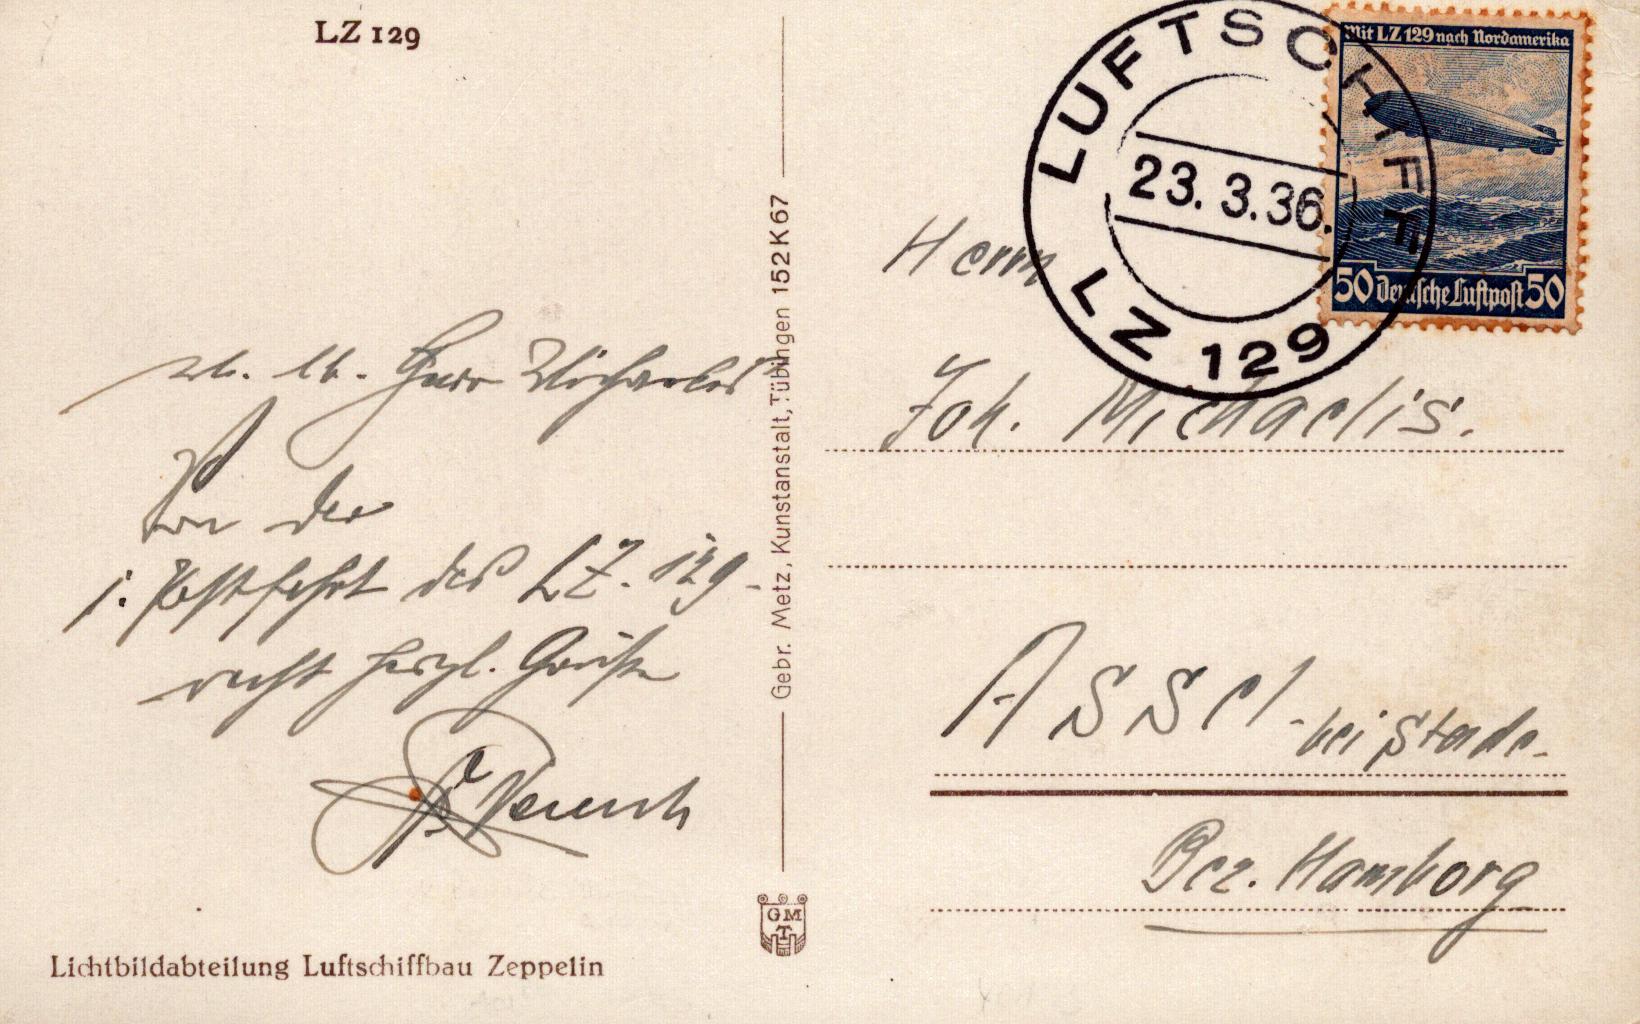 LZ 129
Mit LZ 129 nach Nordamerika
50 Deutsche Luftpost 50
LUFTSCHIFF
23.3.36.
LZ 129
Herrn
Joh. Michaelis.
Assel - bei Stade.
Bez. Hamborg
Herr Michaelis
Von der
1. Postfahrt des LZ. 129.
recht herzl. Grüße
Gebr. Metz, Kunstanstalt, Tübingen 152 K 67
GMT
Lichtbildabteilung Luftschiffbau Zeppelin